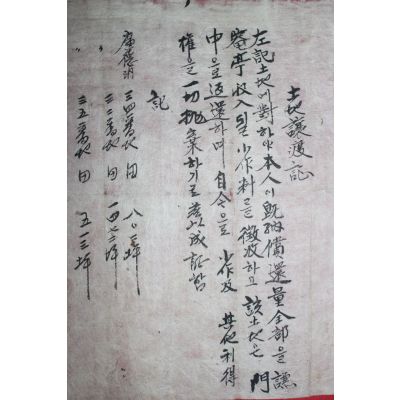 土地讓渡記
左記土地에對하야本人이旣納償還量全部을讓
庵亭收入되일小作料를徵收하고該土地은門
中으로返還하며自今으로小作及其他利得
權을一切抛棄하기로玆以成証함
記
三四番地田 八〇三坪
〃 三二番地田 一四七三坪
〃 三五番地田 五一三坪